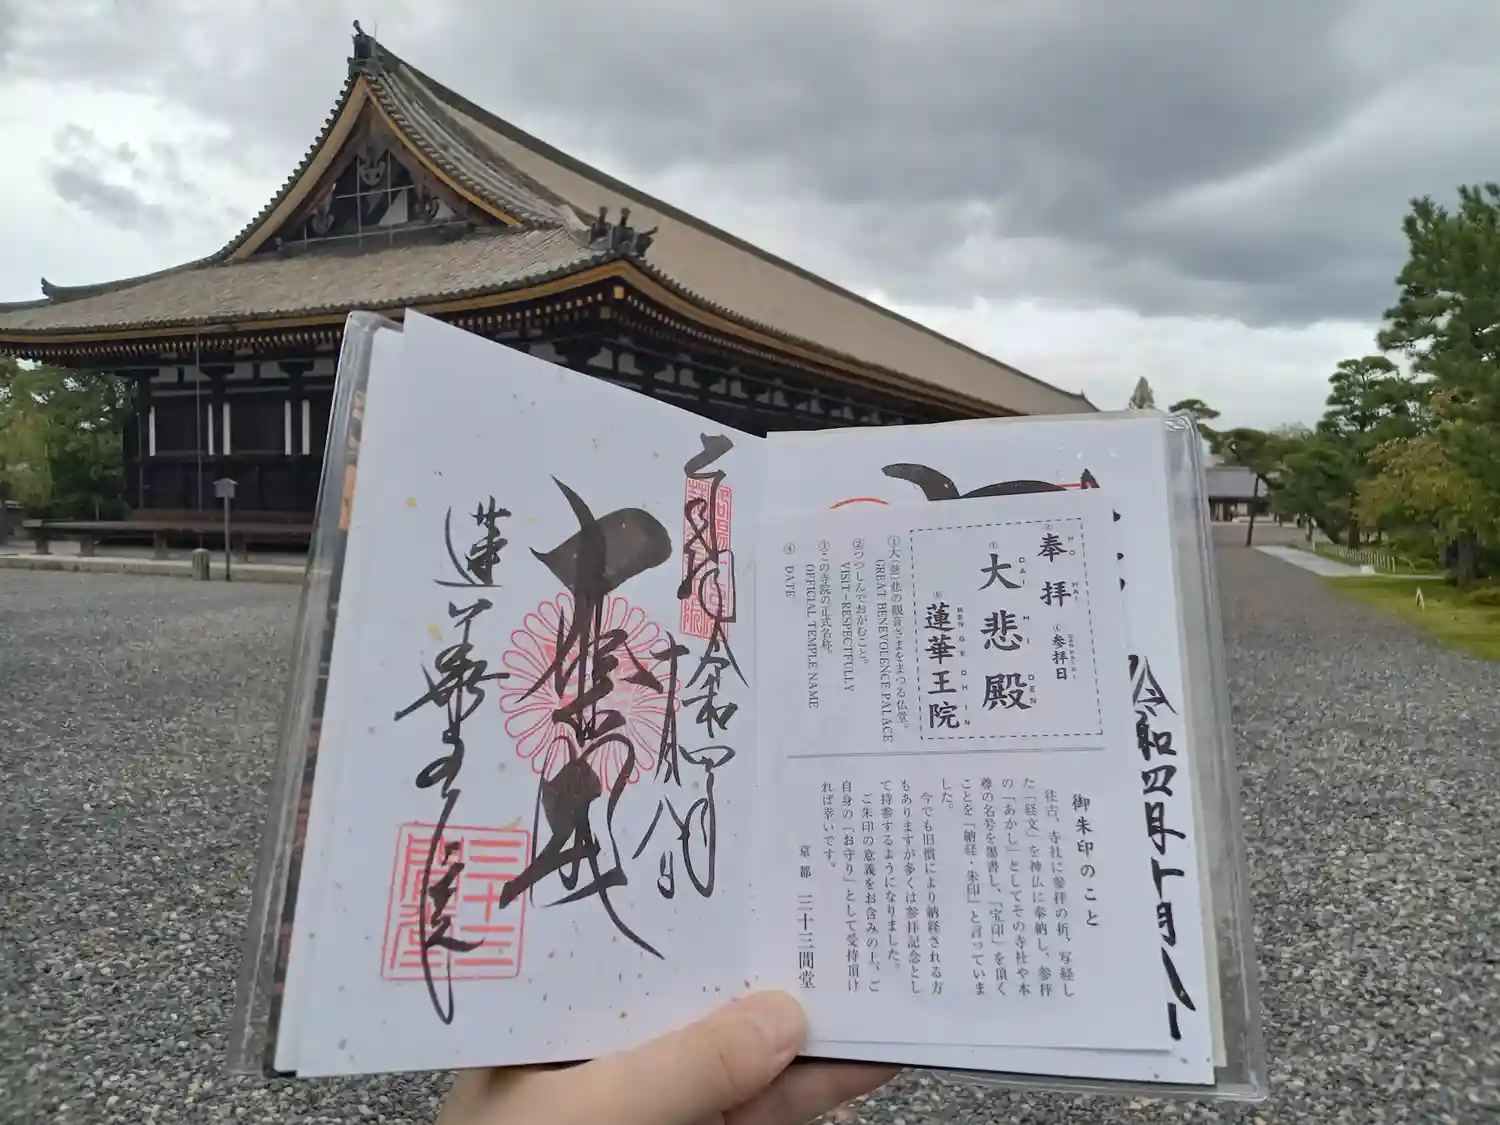 奉拝
令和四年十月八日
大悲殿
蓮華王院
三十三間堂
② HO HAI
奉拝
④ 参拝日
① DAI HI DEN
大悲殿
③ REN GE OH IN
蓮華王院
①大(慈)悲の観音さまをまつる仏堂。
GREAT BENEVOLENCE PALACE
②つつしんでおがむこと。
VISIT–RESPECTFULLY
③この寺院の正式名称。
OFFICIAL TEMPLE NAME
④ DATE
御朱印のこと
往古、寺社に参拝の折、写経し
た「経文」を神仏に奉納し、参拝
の「あかし」としてその寺社や本
尊の名号を墨書し、「宝印」を頂く
ことを「納経・朱印」と言っていま
した。
今でも旧慣により納経される方
もありますが多くは参拝記念とし
て持参するようになりました。
ご朱印の意義をお含みの上、ご
自身の「お守り」として受持頂け
れば幸いです。
京都 三十三間堂
令和四年十月八